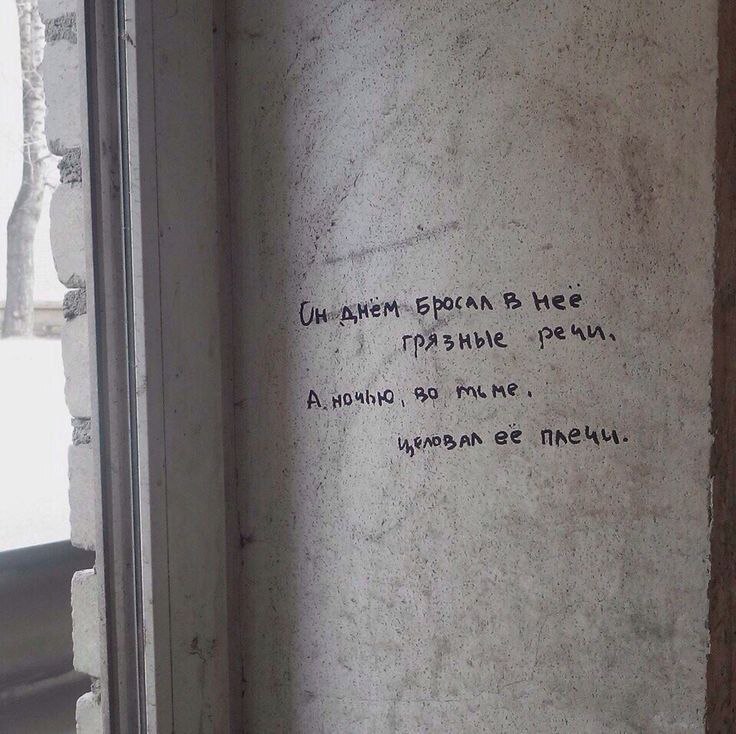 Он днём бросал в неё
грязные речи,
А ночью, во тьме,
целовал её плечи.